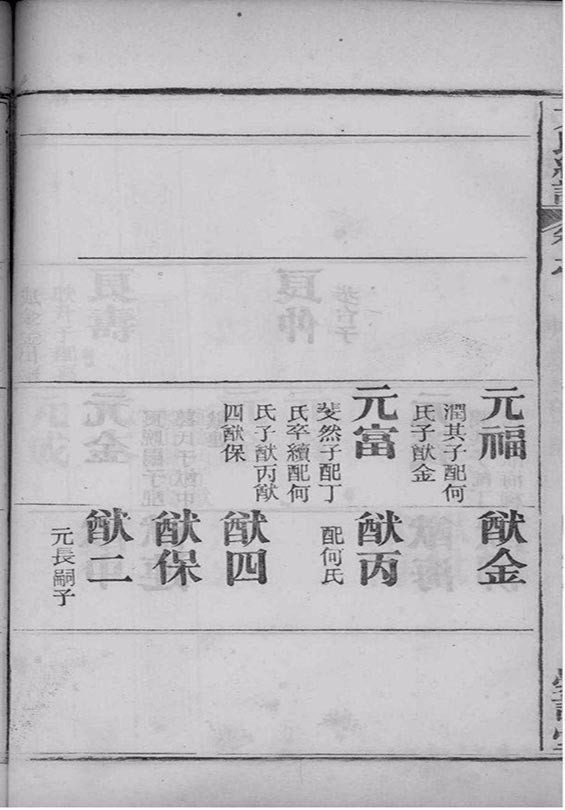 元福
潤其子配何
氏子猷金
元富
斐然子配丁
氏卒續配何
氏子猷丙猷
四猷保
猷金
猷丙
配何氏
猷四
猷保
猷二
元長嗣子